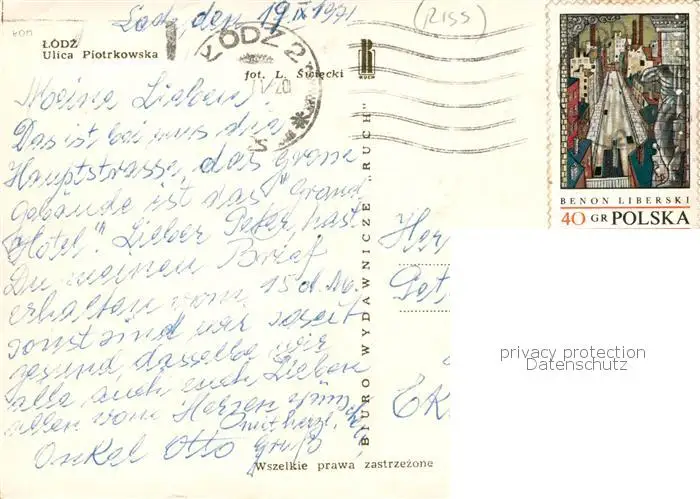 Lodz, den 19 IX 1971
(RISS)
ŁÓDŹ
Ulica Piotrkowska
ŁÓDŹ 2
fot. L. Święcki
RUCH
BENON LIBERSKI
40 GR POLSKA
Meine Lieben.
Das ist bei uns die
Hauptstrasse, das Grosse
Gebäude ist das "Grand
Hotel". Lieber Peter, hast
Du meinen Brief
erhalten vom 15 d. M.
sonst sind wir soweit
gesund, dasselbe wir
alle auch euch Lieben
allen von Herzen
mit herzl.
Gruß
Onkel Otto
BIURO WYDAWNICZE "RUCH"
Wszelkie prawa zastrzeżone
privacy protection
Datenschutz